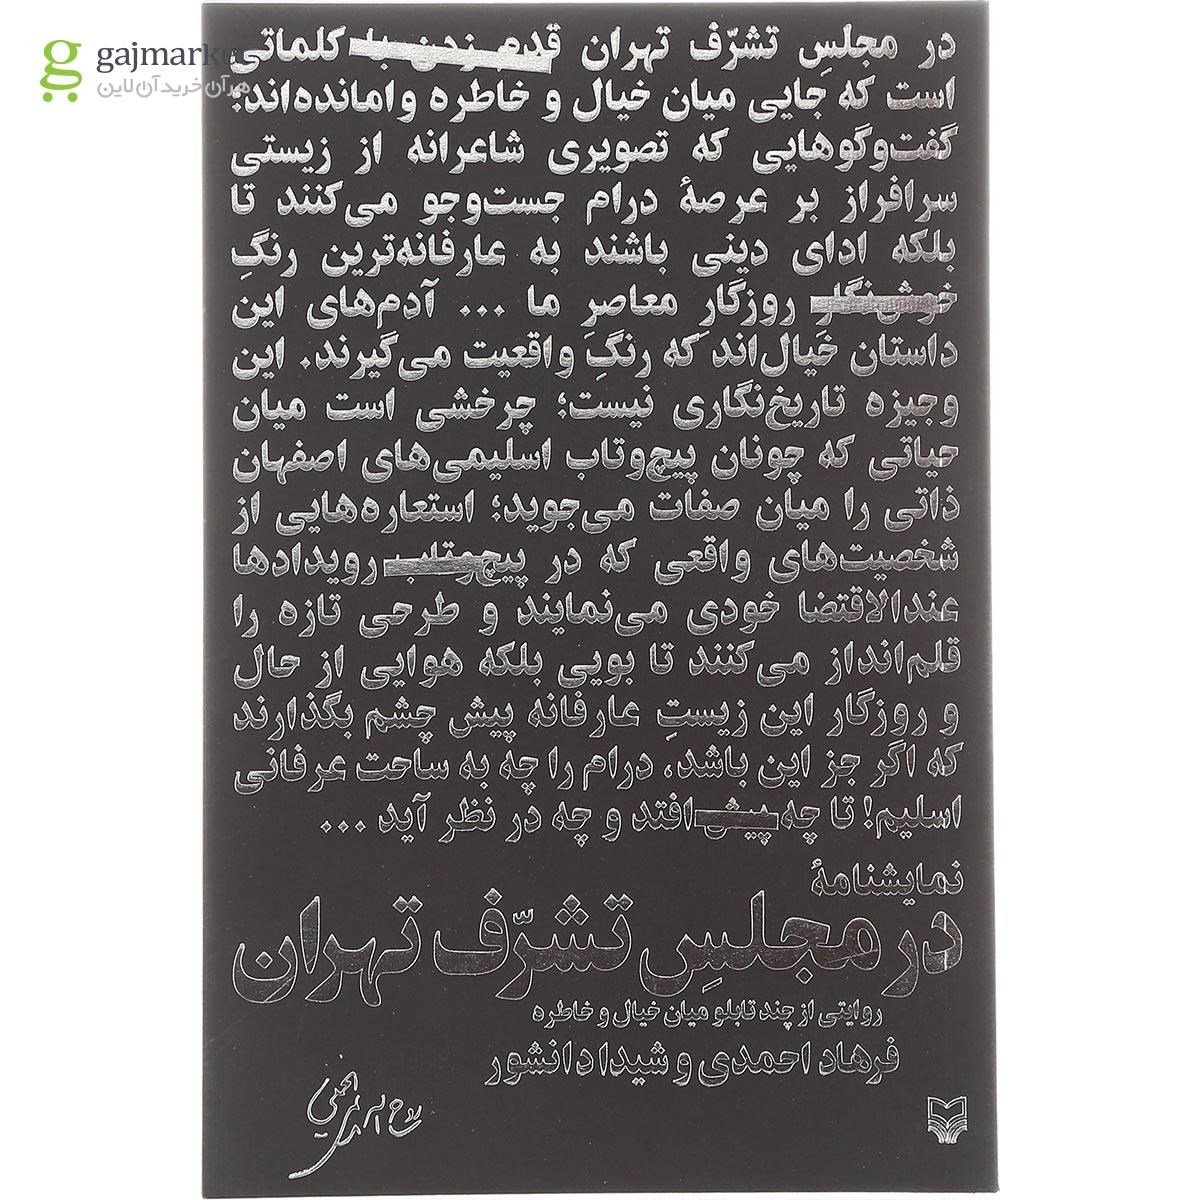 gajmarket
هر آن خرید آن لاین
در مجلسِ تشرّف تهران قدم زدن با کلماتی
است که جایی میان خیال و خاطره وامانده‌اند؛
گفت‌وگوهایی که تصویری شاعرانه از زیستی
سرافراز بر عرصهٔ درام جست‌وجو می‌کنند تا
بلکه ادای دینی باشند به عارفانه‌ترین رنگِ
خوش‌نگارِ روزگارِ معاصرِ ما ... آدم‌های این
داستان خیال‌اند که رنگِ واقعیت می‌گیرند. این
وجیزه تاریخ‌نگاری نیست؛ چرخشی است میان
حیاتی که چونان پیچ‌وتاب اسلیمی‌های اصفهان
ذاتی را میان صفات می‌جوید؛ استعاره‌هایی از
شخصیت‌های واقعی که در پیچ‌وتاب رویدادها
عندالاقتضا خودی می‌نمایند و طرحی تازه را
قلم‌انداز می‌کنند تا بویی بلکه هوایی از حال
و روزگار این زیستِ عارفانه پیش چشم بگذارند
که اگر جز این باشد، درام را چه به ساحت عرفانی
اسلیم! تا چه پیش افتد و چه در نظر آید ...
نمایشنامهٔ
در مجلسِ تشرّف تهران
روایتی از چند تابلو میان خیال و خاطره
فرهاد احمدی و شیدا دانشور
روح الله الموسوی الخمینی